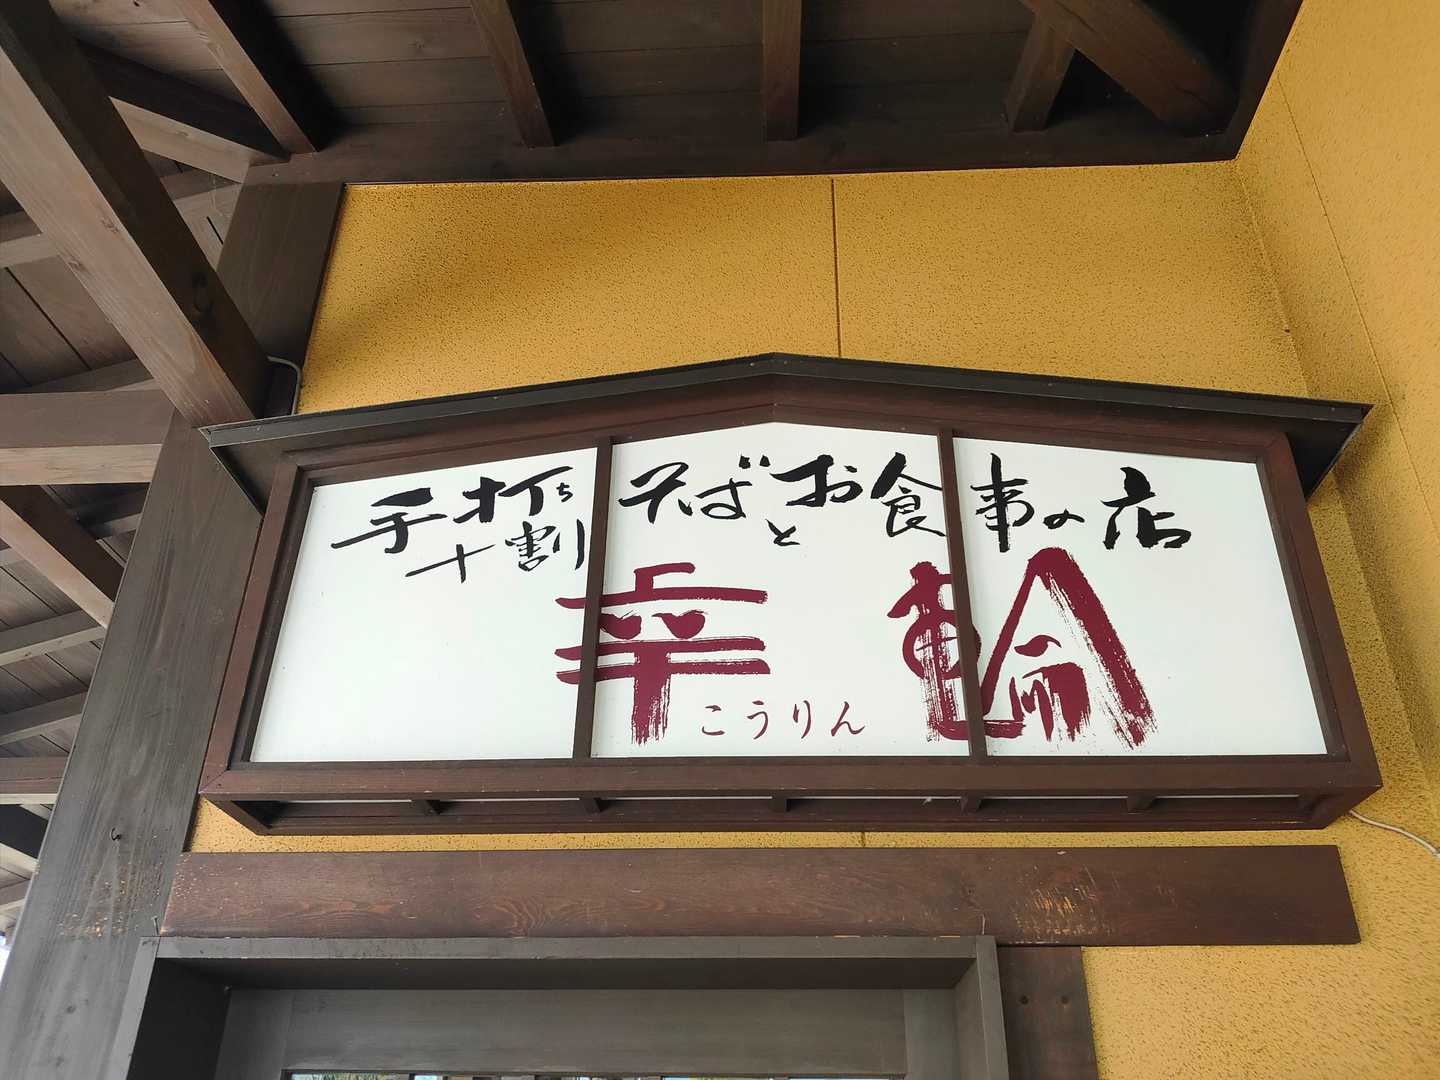 手打ち十割そばとお食事の店
幸輪
こうりん